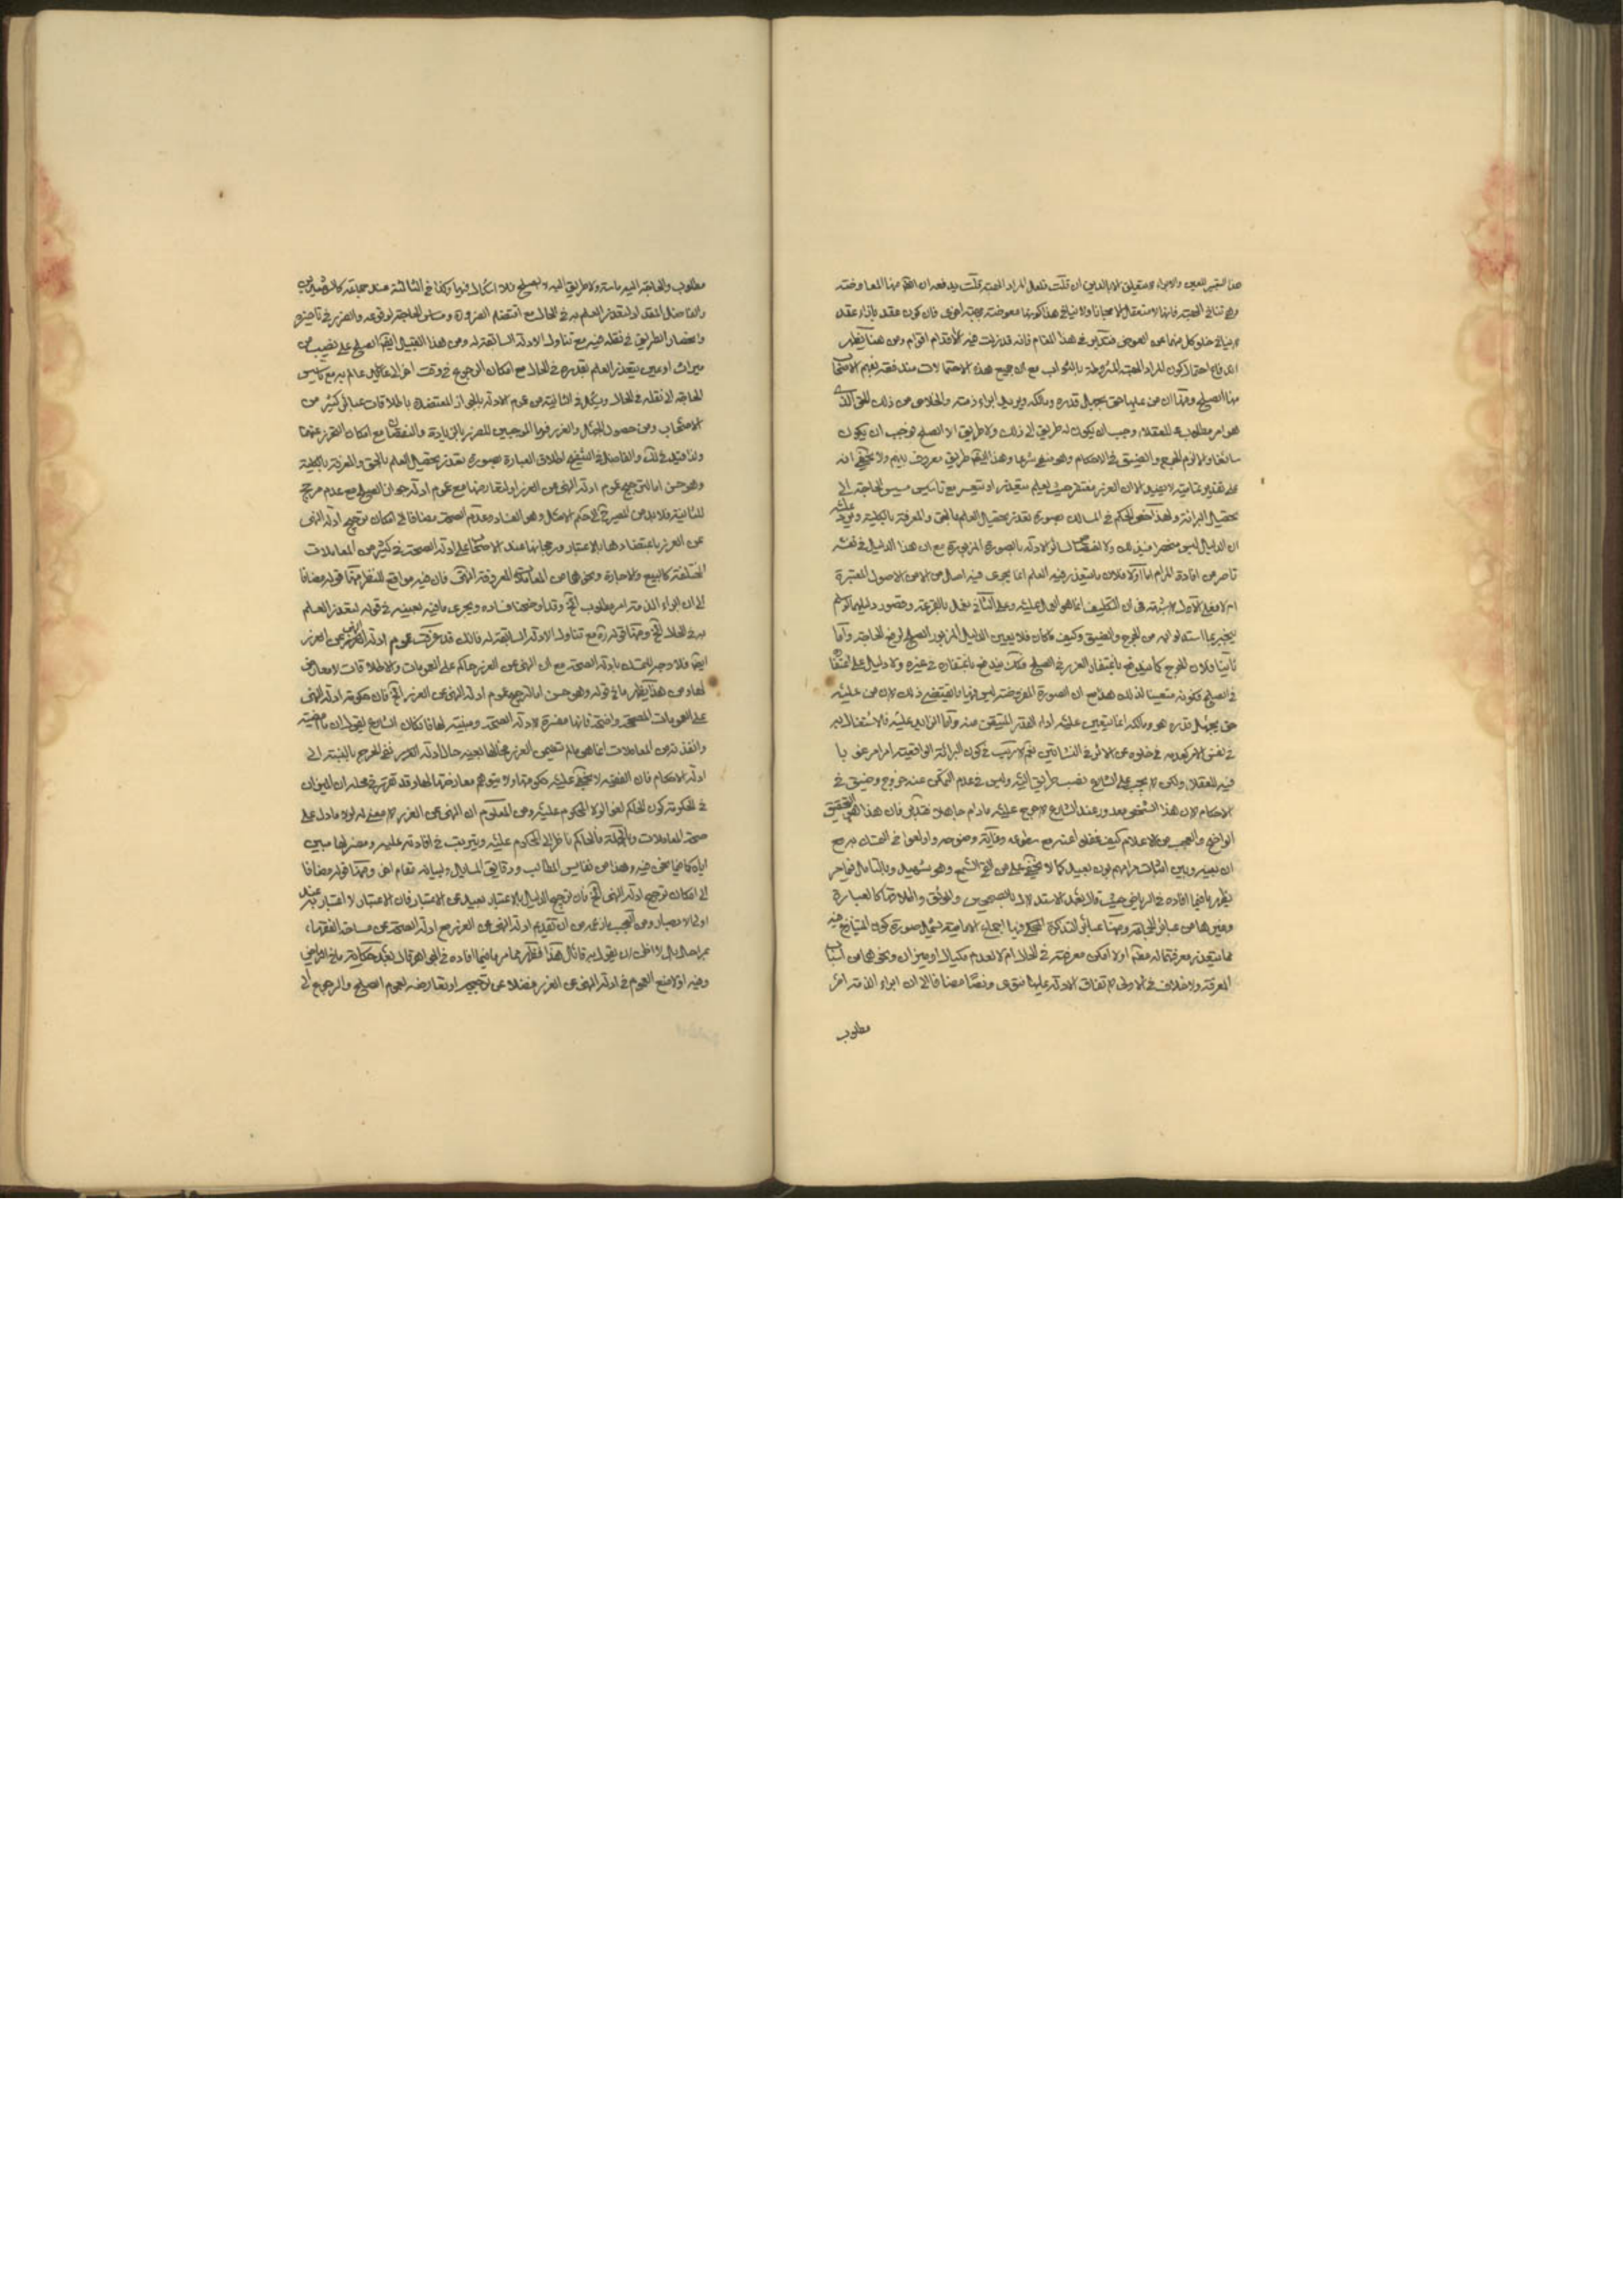 هذا التعبير العين والابراء لا يتعلق الا بالدين ان قلت لعل المراد الهبة قلت يدفعه ان الهبة المعاوضة
وهي تنافي الهبة فانها لا تتعقل الا مجانا ولا ينافي هذا كونها معوضة بهبة اخرى فان كون عقد بازاء عقد
لا ينافي خلو كل منهما عن العوض فتدبر في هذا المقام فانه قد زلت فيه الاقدام اقوام ومن هنا يظهر
اندفاع احتمال كون المراد الهبة المشروطة بالثواب مع ان جميع هذه الاحتمالات
منها الصلح ومنها ان من عليه حق يجهل قدره ومالكه ويريد ابراء ذمته والخلاص من ذلك الحق الذي
هو امر مطلوب للعقلاء وجب ان يكون له طريق الى ذلك ولا طريق الا الصلح فوجب ان يكون
سائغا والا لزم الحرج والضيق في الاحكام وهو منفي شرعا وهذا ايضا طريق معروف بينهم ولا يخفى انه
على تقدير تماميته لا يفيد الا ان الغرر مغتفر حيث العلم متعذر او متعسر مع تاكيس مسيس الحاجة الى
تحصيل البرائة ولهذا خص الحكم في المسالك بصورة تعذر تحصيل العلم بالحق والمعرفة بالكلية ويرد عليه
ان الدليل ليس منحصرا فيذلك ولا لسائر الادلة بالصورة المزبورة مع ان هذا الدليل في نفسه
قاصر من افادة المرام اما اولا فلان ما يتعذر فيه العلم انما يجري فيه اصل من الاصول المعتبرة
ام لا فعلى الاول لا شبهة في ان التكليف انما هو العمل عليه وعلى الثاني يعمل بالقرعة وقصور دليلها
ينجبر بما استدلوا به من الحرج والضيق وكيف ما كان فلا يعين الدليل المزبور الصلح لرفع الحاجة واما
ثانيا فلان الحرج كما يندفع باغتفار الغرر في الصلح فكذلك يندفع باغتفاره في غيره ولا دليل على
في الصلح فكونه متعينا لذلك هذا مع ان الصورة المفروضة ليس فيها ما يقتضي ذلك لان من عليه
حق يجهل قدره هو ومالكه انما يتعين عليه اداء القدر المتيقن منه واما الزايد عليه فالاشتغال به
في نفس الامر كعدمه في خلوه عن الاثر في النشاتين نعم لا ريب في كون البرائة الواقعية امرا مرغوبا
فيه للعقلاء ولكن لا يجب على الشارع نصب طريق اليه وليس في عدم التمكن عنه حرج وضيق في
الاحكام لان هذا الشخص معذور عند الشارع لا حرج عليه مادام جاهلا فتدبر فان هذا هو التحقيق
الواضح والعجب من الاعلام كيف غفلوا عنه مع سطوعه وغاية وضوحه واولعوا في التمسك به مع
ان بينه وبين اثبات مرامهم بون بعيد كما لا يخفى على من القى السمع وهو شهيد وبالتامل فيما مر
يظهر ما فيما افاده في الرياض حيث قال بعد الاستدلال بالصحيحين والموثق واطلاقها كالعبارة
وغيرها من عبائر الجماعة ومنها عبائر التذكرة المحكي فيها اجماع الامامية يشمل صورة كون المتنازع فيه
مما يتعذر معرفتهما له مطلقا اولا امكن معرفته في الحال ام لا لعدم مكيال او ميزان ونحوهما من اسباب
المعرفة ولا خلاف في الاولى لاتفاق الادلة عليها فتوى ونصا مضافا الى ان ابراء الذمة امر
مطلوب
مطلوب والحاجة اليه ماسة ولا طريق اليه الا الصلح فلا اشكال فيها وكذا في الثانية عند جماعة كالشهيدين
والفاضل المقداد لتعذر العلم به في الحال مع اقتضاء الضرورة ومساس الحاجة لوقوعه والضرر في تاخيره
وانحصار الطريق في نقله فيه مع تناول الادلة السابقة له ومن هذا القبيل ايضا الصلح على نصيب من
ميراث او عين يتعذر العلم بقدره في الحال مع امكان الرجوع في وقت اخر الى عالم به مع مسيس
الحاجة الى نقله في الحال ويشكل في الثانية من عموم الادلة بالجواز المعتضدة باطلاقات عبائر كثير من
الاصحاب ومن حصول الجهل والغرر فيها الموجبين للضرر بالزيادة والنقصان مع امكان التحرز عنهما
ولذا قيد في لك والفاضل في التنقيح اطلاق العبارة بصورة تعذر تحصيل العلم بالحق والمعرفة بالكلية
وهو حسن اما لترجيح عموم ادلة النهي عن الغرر او لتعارضها مع عموم ادلة جواز الصلح مع عدم مرجح
للثانية فلا بد من المصير الى حكم الاصل وهو الفساد وعدم الصحة مضافا الى امكان ترجيح ادلة النهي
عن الغرر باعتضادها بالاعتبار ورجحانها عند الاصحاب على ادلة الصحة في كثير من المعاملات
المختلفة كالبيع والاجارة ونحوهما من المعاملات المعروفة انتهى فان فيه مواقع للنظر منها قوله مضافا
الى ان ابراء الذمة امر مطلوب الخ وقد اوضحنا فساده ويجري ما فيه بعينه في قوله لتعذر العلم
به في الحال الخ ومنها قوله ره مع تناول الادلة السابقة له فانك قد عرفت عموم ادلة النهي عن الغرر
ايضا فلا وجه للتمسك بادلة الصحة مع ان النهي عن الغرر حاكم على العمومات والاطلاقات لا معارض
لها ومن هذا يظهر ما في قوله وهو حسن اما لترجيح عموم ادلة النهي عن الغرر الخ فان حكومة ادلة النهي
على العمومات المصححة واضحة فانها مفسرة لادلة الصحة ومبينة لها فكان الشارع يقول ان ما امضيته
وانفذته من المعاملات انما هو ما لم تتضمن الغرر فحالها بعينه حال ادلة الضرر ونفي الحرج بالنسبة الى
ادلة الاحكام فان الفقيه لا يخفى عليه حكومتها ولا يتوهم معارضتها لها وقد تقرر في محله ان الميزان
في الحكومة كون الحاكم لغوا لولا المحكوم عليه ومن المعلوم ان النهي عن الغرر لا معنى له لولا ما دل على
صحة المعاملات وبالجملة فالحاكم ناظر الى المحكوم عليه ويترتب في افادته عليه ومفسر لها مبين
اياه كما فيما نحن فيه وهذا من نفايس المطالب ودقائق المسائل ولبيانه مقام اخر ومنها قوله مضافا
الى امكان ترجيح ادلة النهي الخ فان ترجيح الدليل بالاعتبار بعيد عن الاعتبار فان الاعتبار لا اعتبار به عند
اولي الابصار ومن العجب ما زعمه من ان تقديم ادلة النهي عن الغرر مع ادلة الصحة عن مساحة الفقهاء
بمراحل بل لا اظن ان يقول به قائل هكذا فقد ظهر مما مر ما فيما افاده في الجواهر قال بعد حكاية ما في الرياض
وفيه اولا منع العموم في ادلة النهي عن الغرر فضلا عن ترجيحه او تعارضه لعموم الصلح والرجوع الى